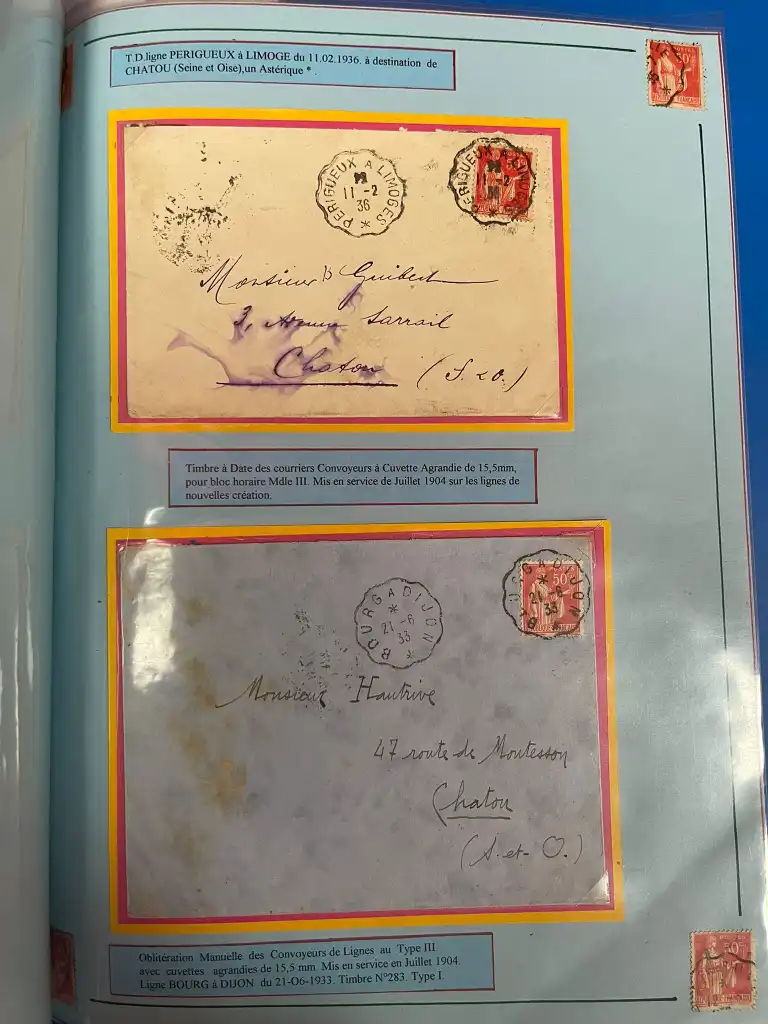 T.D.ligne PERIGUEUX à LIMOGE du 11.02.1936. à destination de
CHATOU (Seine et Oise),un Astérique * .
50c
PERIGUEUX A LIMOGES *
11 -2
36
PERIGUEUX A LIMOGES
Monsieur Guibert
3, Avenue Sarrail
Chatou (S. &O.)
Timbre à Date des courriers Convoyeurs à Cuvette Agrandie de 15,5mm,
pour bloc horaire Mdle III. Mis en service de Juillet 1904 sur les lignes de
nouvelles création.
BOURG A DIJON *
*
21 -6
33
BOURG A DIJON
*
21 -6
33
50c
Monsieur Hautrive
47 route de Montesson
Chatou
(S. et O.)
Oblitération Manuelle des Convoyeurs de Lignes au Type III
avec cuvettes agrandies de 15,5 mm Mis en service en Juillet 1904.
Ligne BOURG à DIJON du 21-O6-1933. Timbre N°283. Type I.
50c